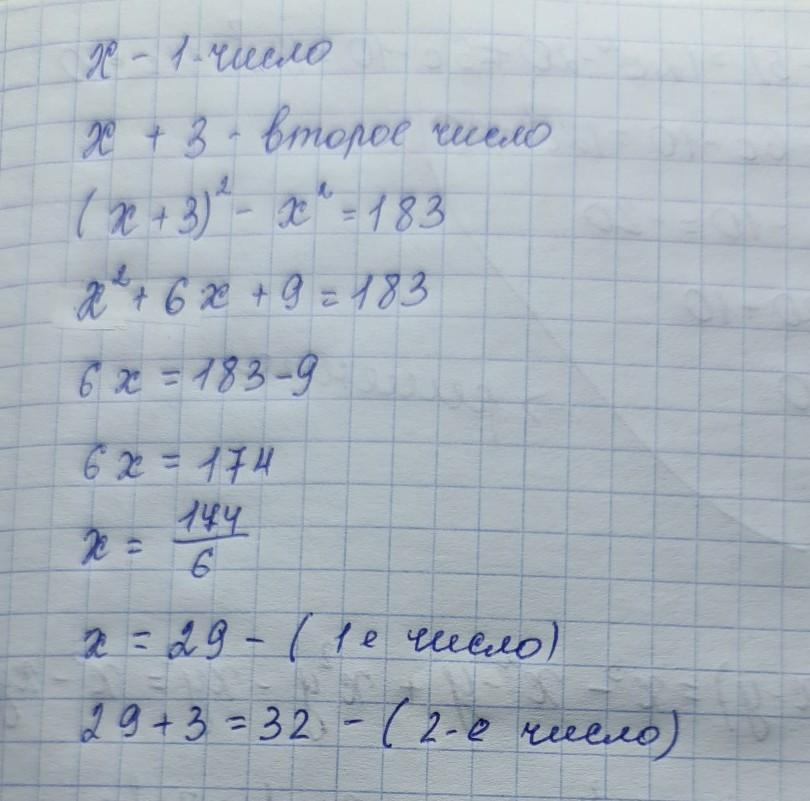 x - 1 число
x + 3 - второе число
(x + 3)² - x² = 183
x² + 6x + 9 = 183
6x = 183 - 9
6x = 174
x = 174/6
x = 29 - (1е число)
29 + 3 = 32 - (2-е число)